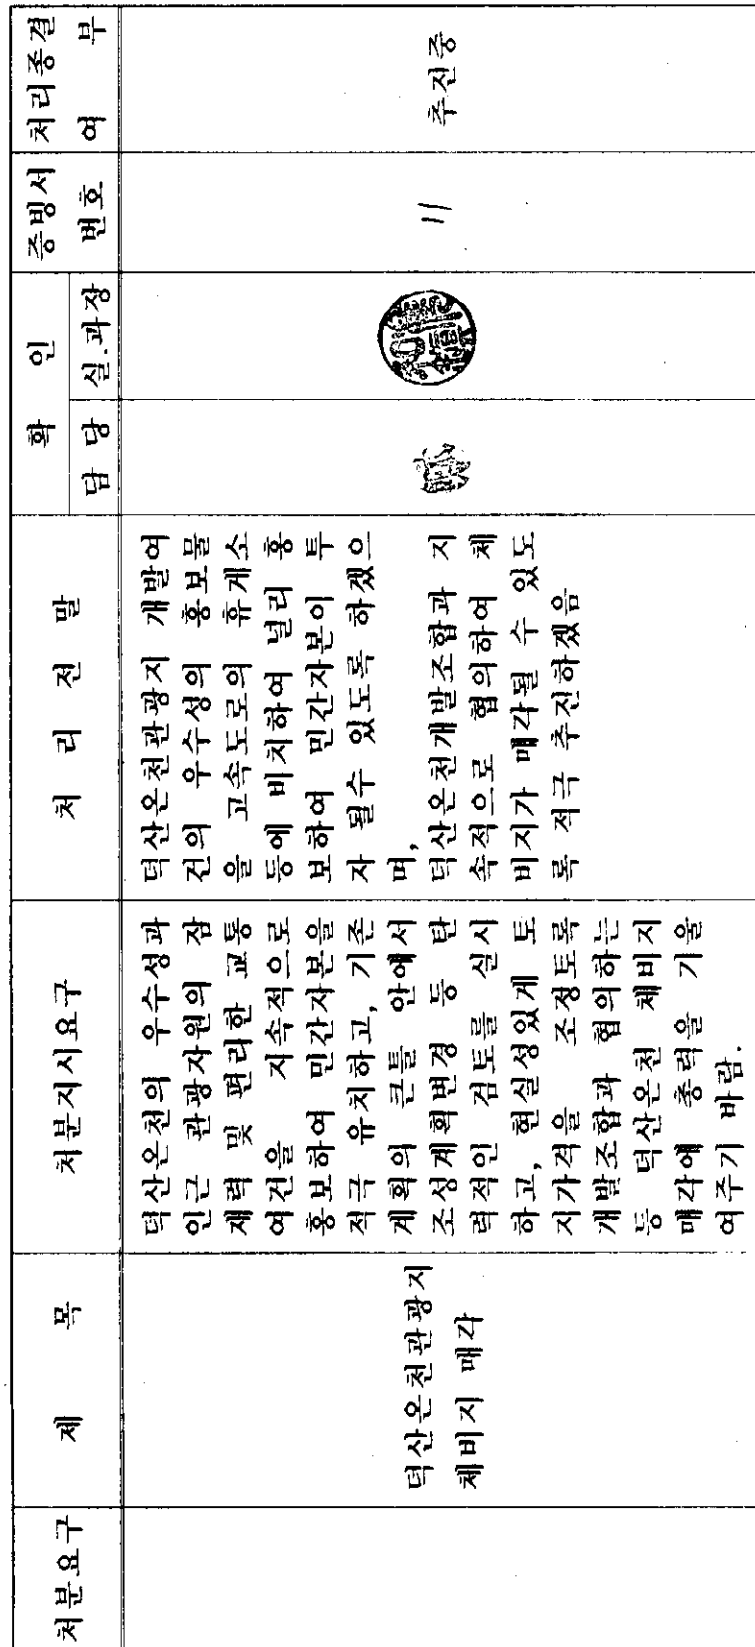 처분요구
제 목
처분지시요구
처 리 전 말
확 인
담 당
실.과장
증빙서
번호
처리종결
여 부
덕산온천관광지
체비지 매각
덕산온천의 우수성과
인근 관광자원의 잠
재력 및 편리한 교통
여건을 지속적으로
홍보하여 민간자본을
적극 유치하고, 기존
계획의 큰틀 안에서
조성계획변경 등 탄
력적인 검토를 실시
하고, 현실성있게 토
지가격을 조정토록
개발조합과 협의하는
등 덕산온천 체비지
매각에 총력을 기울
여주기 바람.
덕산온천관광지 개발여
건의 우수성의 홍보물
을 고속도로의 휴게소
등에 비치하여 널리 홍
보하여 민간자본이 투
자 될수 있도록 하겠으
며,
덕산온천개발조합과 지
속적으로 협의하여 체
비지가 매각될 수 있도
록 적극 추진하겠음
11
추진중